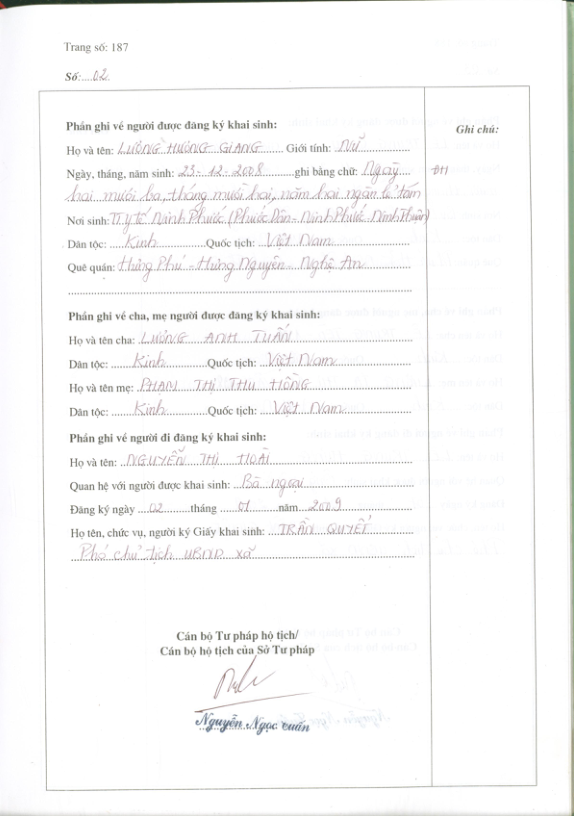 Trang số: 187
Số:....02
Phần ghi về người được đăng ký khai sinh:
Ghi chú:
Họ và tên: LƯƠNG HƯƠNG GIANG Giới tính: Nữ
Ngày, tháng, năm sinh: 23-12-2008 ghi bằng chữ: Ngày
ĐH
hai mươi ba, tháng mười hai, năm hai ngàn lẻ tám
Nơi sinh: Tr y tế Ninh Phước (Phước Dân - Ninh Phước Ninh Thuận)
Dân tộc: Kinh Quốc tịch: Việt Nam
Quê quán: Hưng Phú - Hưng Nguyên - Nghệ An
Phần ghi về cha, mẹ người được đăng ký khai sinh:
Họ và tên cha: LƯƠNG ANH TUẤN
Dân tộc: Kinh Quốc tịch: Việt Nam
Họ và tên mẹ: PHAN THỊ THU HỒNG
Dân tộc: Kinh Quốc tịch: Việt Nam
Phần ghi về người đi đăng ký khai sinh:
Họ và tên: NGUYỄN THỊ HOÀI
Quan hệ với người được khai sinh: Bà ngoại
Đăng ký ngày 02 tháng 01 năm 2009
Họ tên, chức vụ, người ký Giấy khai sinh: TRẦN QUYẾT
Phó chủ tịch UBND xã
Cán bộ Tư pháp hộ tịch/
Cán bộ hộ tịch của Sở Tư pháp
Nguyễn Ngọc Tuấn